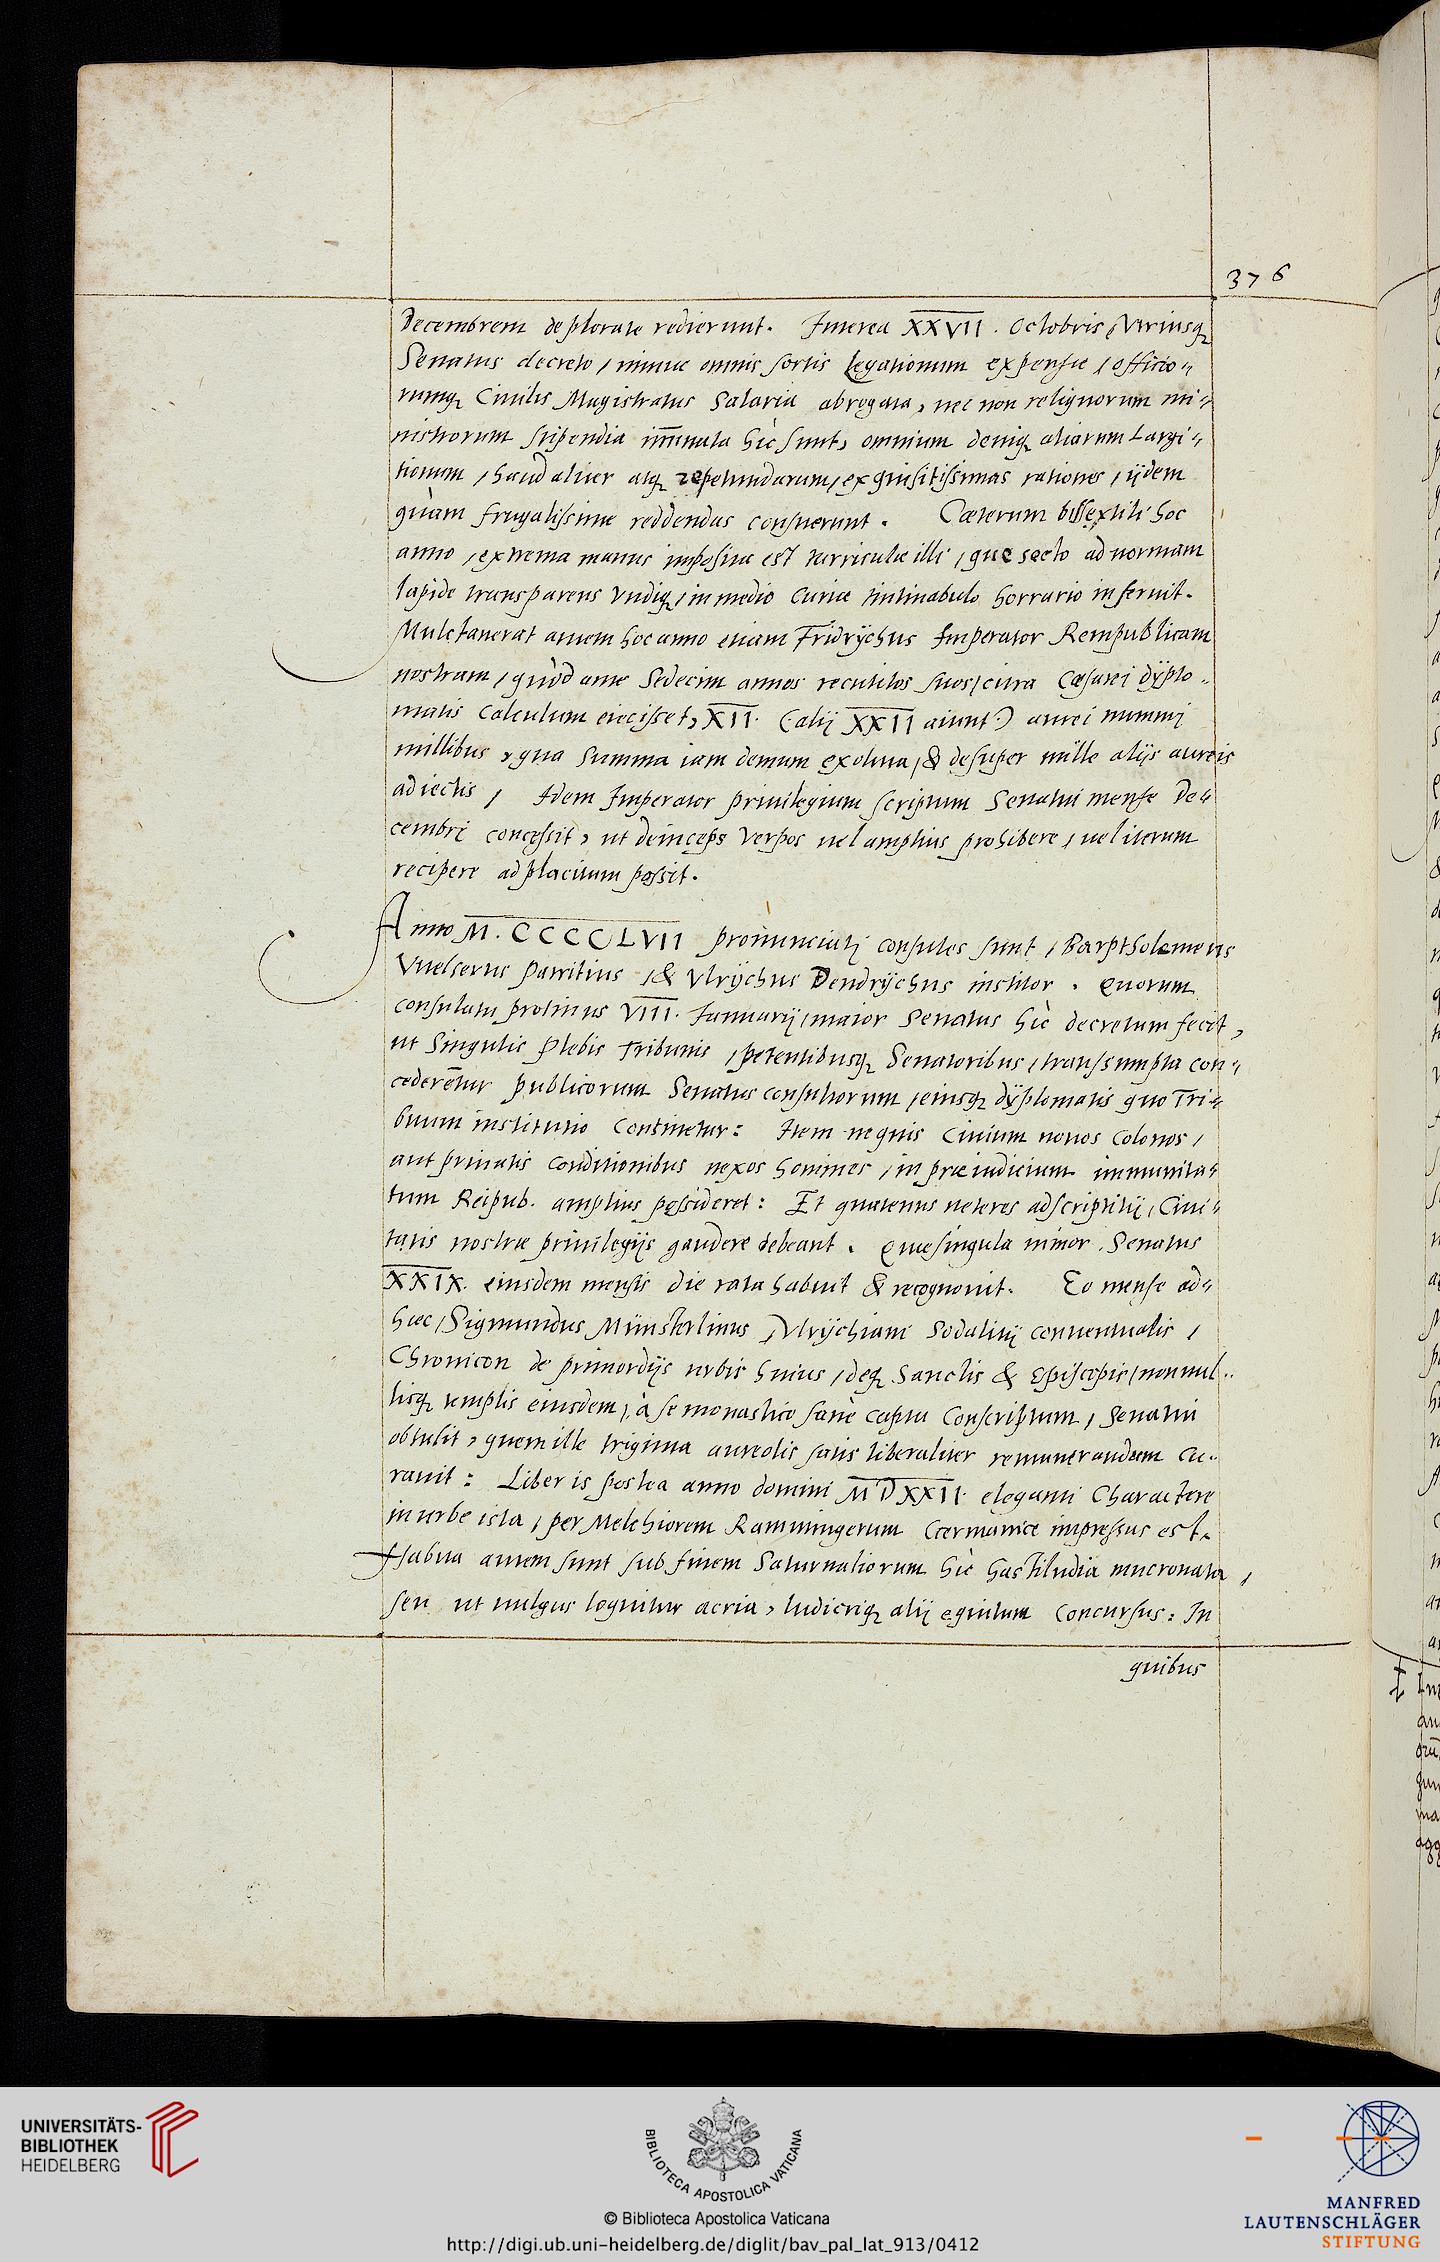 376
Decembrem deplorate redierunt. Interea XXVII. Octobris, Vtriusq
Senatus decreto, nimiae omnis sortis Legationum expensae, officio-
rumq Ciuilis Magistratus Salaria abrogata, nec non reliquorum mi-
nistrorum stipendia im̄inuta hic sunt, omnium deniq aliarum Largi-
tionum, haud aliter atq repetundarum, exquisitissimas rationes, ijdem
quàm frugalissime reddendas censuerunt. Cæterum bissextili hoc
anno, extrema manus imposita est turriculae illi, que secto ad normam
lapide transparens vndiq, in medio Curiae tintinabulo horrario inseruit.
Mulctauerat autem hoc anno etiam Fridrÿchus Imperator Rempublicam
nostram, quòd ante Sedecim annos recutitos suos, citra Cæsarei dÿplo-
matis calculum eiecisset, XII. (alij XXII aiunt) aurei nummj
millibus, qua summa iam demum exoluta, & desuper mille alijs aureis
adiectis, Idem Imperator priuilegium scriptum Senatui mense De-
cembrj concessit, ut deinceps Verpos uel amplius prohibere, uel iterum
recipere ad placitum possit.
Anno M.CCCCLVII pronunciatj consules sunt, Barptholemeus
Vuelserus Patritius, & Vlrÿchus Dendrÿchus institor. Quorum
consulatu protinus VIII. Januarij, maior Senatus hìc decretum fecit,
ut Singulis Plebis Tribunis, petentibusq Senatoribus, transsumpta con-
cederētur publicorum Senatus consultorum, eiusq dÿplomatis quo Tri-
buum institutio continetur: Item nequis Ciuium nouos Colonos,
aut priuatis conditionibus nexos homines, in præiudicium immunita-
tum Reipub. amplius possideret: Et quatenus ueteres adscriptitij, Ciui-
tatis nostræ priuilegijs gaudere debeant. Quæ singula minor Senatus
XXIX. eiusdem mensis die rata habuit & recognouit. Eo mense ad-
huc, Sigmundus Münsterlinus, Vlrÿchiani Sodalitij conuentualis,
Chronicon de primordijs urbis huius, deq Sanctis & Episcopis, nonnul-
lisq templis eiusdem, à se monastico sanè captu conscriptum, Senatui
obtulit, quem ille triginta aureolis satis liberaliter remunerandum cu-
rauit: Liber is postea anno domini MDXXII. eleganti Charactere
in urbe ista, per Melchiorem Rammingerum Germanice impressus est.
Habita autem sunt sub finem Saturnaliorum hìc hastiludia mucronata,
seu ut uulgus loquitur acria, ludicriq alij equitum concursus: In
quibus
UNIVERSITÄTS-
BIBLIOTHEK
HEIDELBERG
BIBLIOTECA APOSTOLICA VATICANA
© Biblioteca Apostolica Vaticana
http://digi.ub.uni-heidelberg.de/diglit/bav_pal_lat_913/0412
MANFRED
LAUTENSCHLÄGER
STIFTUNG